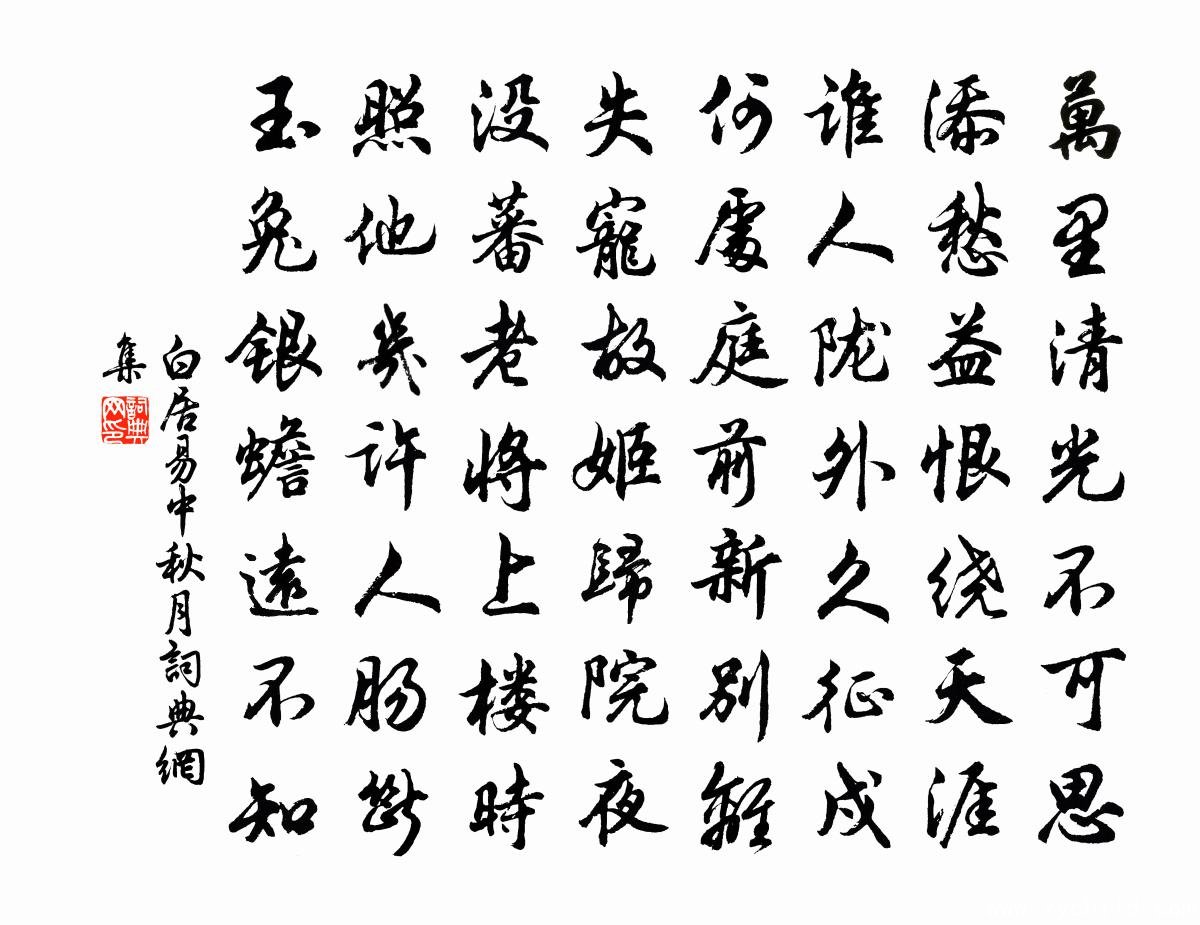 萬里清光不可思
添愁益恨绕天涯
谁人陇外久征戍
何處庭前新别離
失寵故姬歸院夜
没蕃老将上楼時
照他幾许人肠斷
玉兔銀蟾遠不知
白居易中秋月詞典網
集
詞典网印